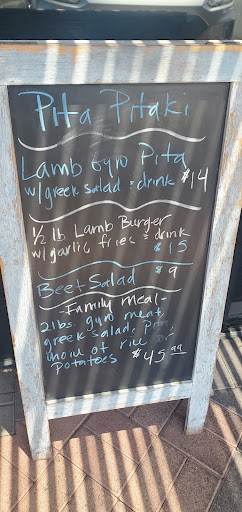 Pita Pitaki
Lamb Gyro Pita
w/greek salad & drink $14
1/2 lb Lamb Burger
w/garlic fries & drink
$15
Beet Salad $9
-Family Meal-
2lbs. gyro meat,
greek salad,
choice of rice
potatoes $45.99